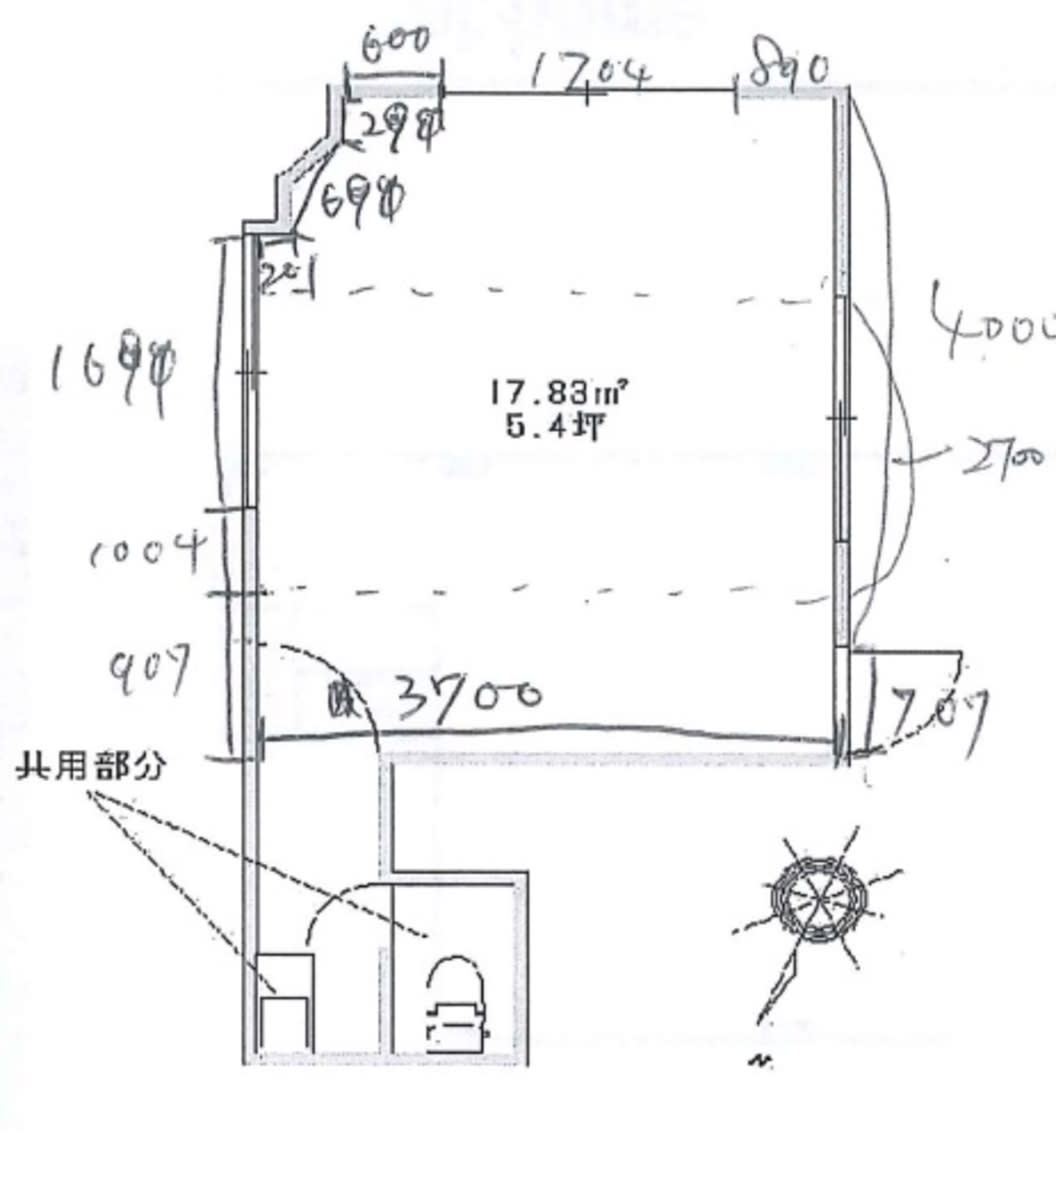 600
1704
890
201
4000
17.83㎡
5.4坪
2700
1004
907
3700
707
共用部分
N